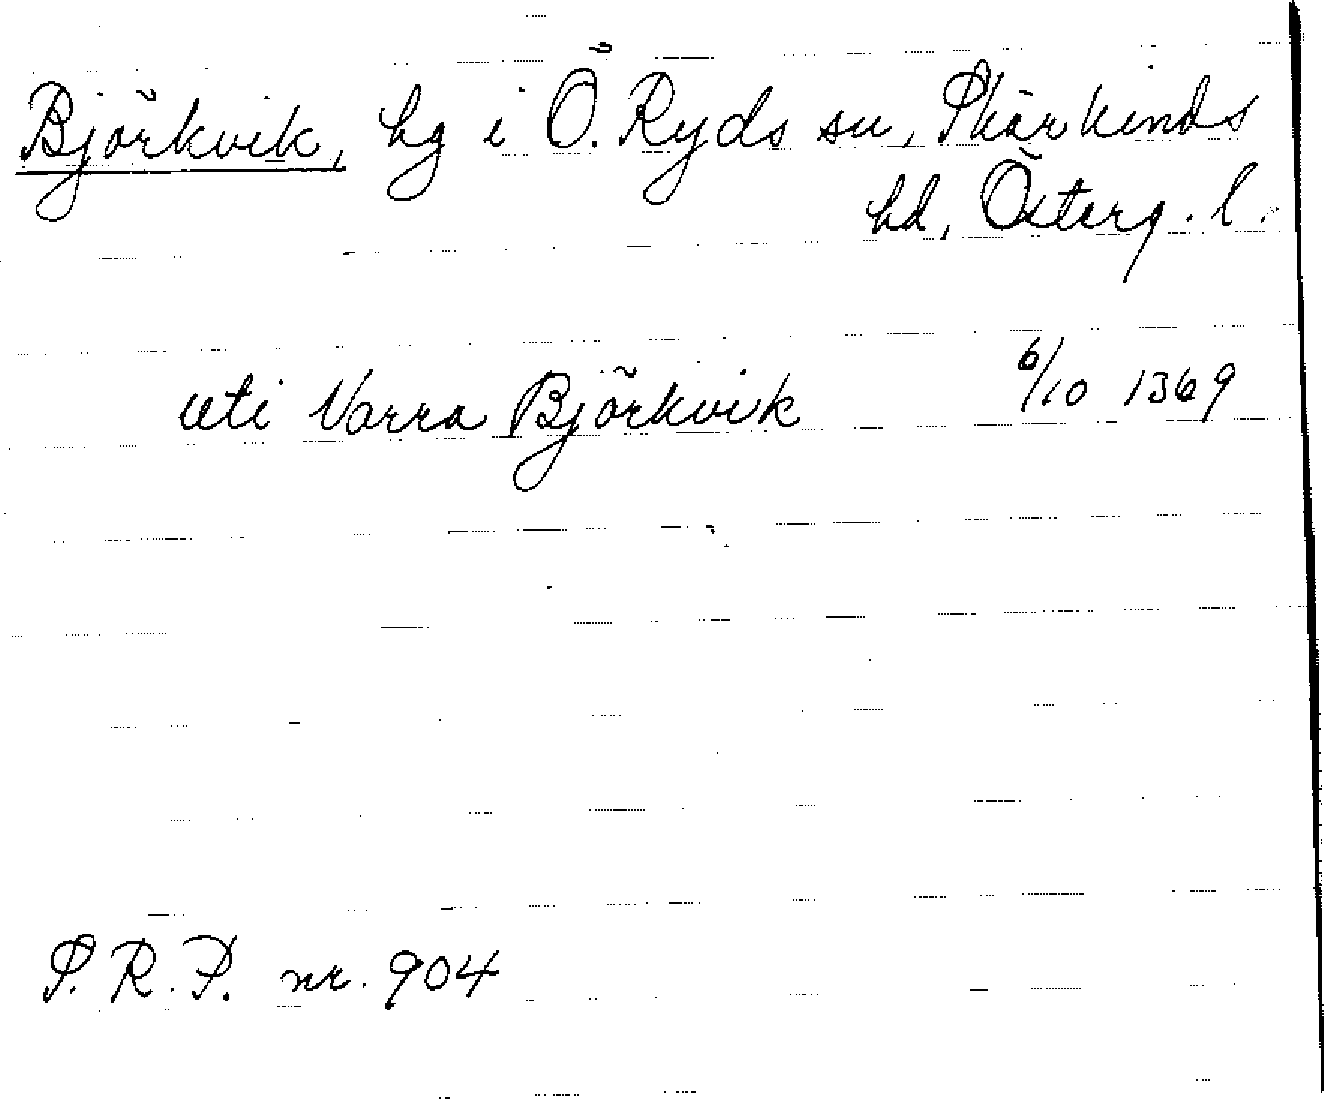 Björkvik, hg i Ö. Ryds sn, Skärkinds
hd, Österg. l.
uti Varra Björkvik 6/10 1369
S.R.P. nr. 904